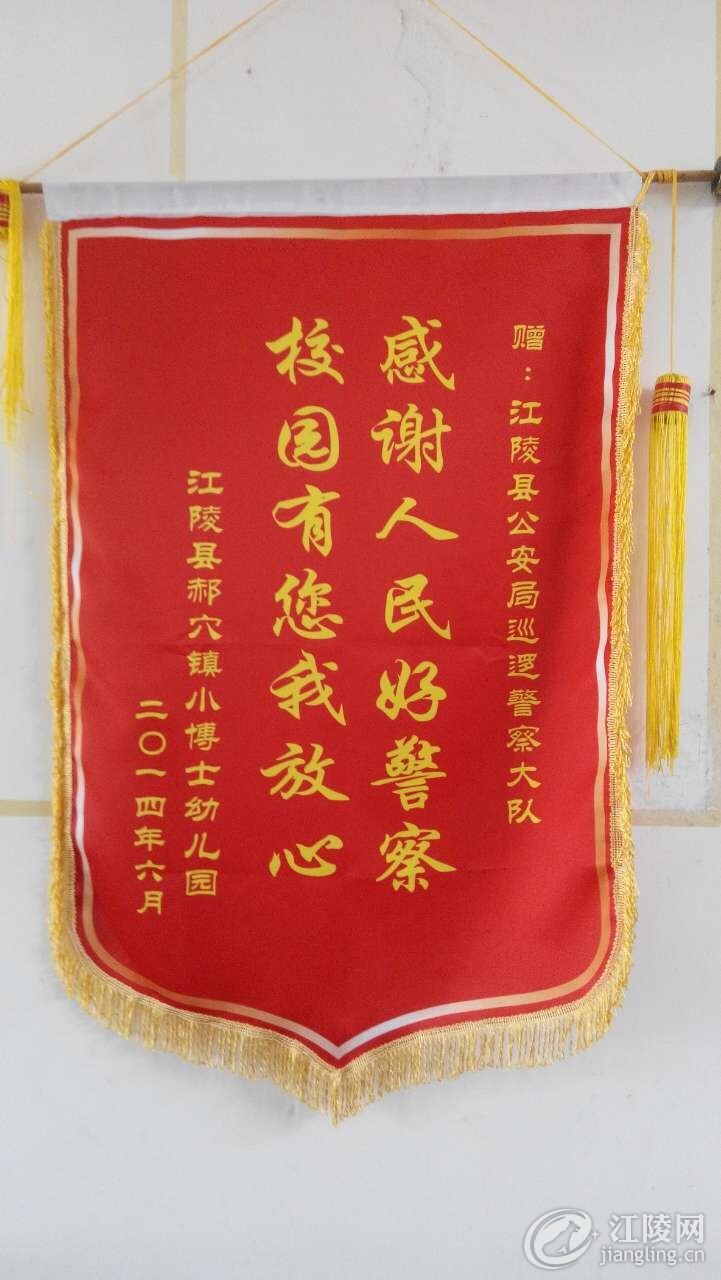 赠：江陵县公安局巡逻警察大队
感谢人民好警察
校园有您我放心
江陵县郝穴镇小博士幼儿园
二〇一四年六月
江陵网
jiangling.cn